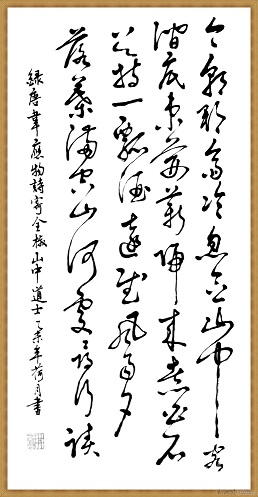 今朝郡齋冷忽念山中客
澗底束荊薪歸來煮白石
欲持一瓢酒遠慰風雨夕
落葉滿空山何處尋行跡
錄唐韋應物詩寄全椒山中道士乙未年荷月書